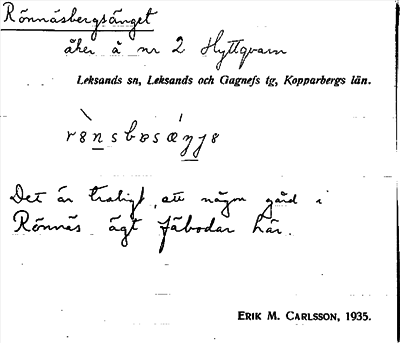 Rönnäsbergsänget
åker å nr 2 Hyttqvarn
Leksands sn, Leksands och Gagnefs tg, Kopparbergs län.
Det är troligt, att någon gård i
Rönnäs ägt fäbodar här.
ERIK M. CARLSSON, 1935.